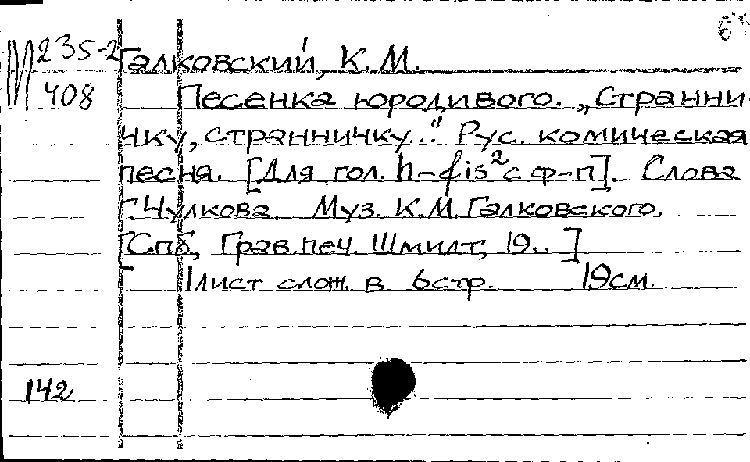 М 235-2 Галковский, К. М.
408 Песенка юродивого. „Странни-
чку, странничку..." Рус. комическая
песня. [Для гол. h-fis² с ф-п]. Слова
Г. Чулкова. Муз. К. М. Галковского.
[Спб, Грав. печ. Шмидт, 19..]
1 лист слож. в 6 стр. 19 см.
142